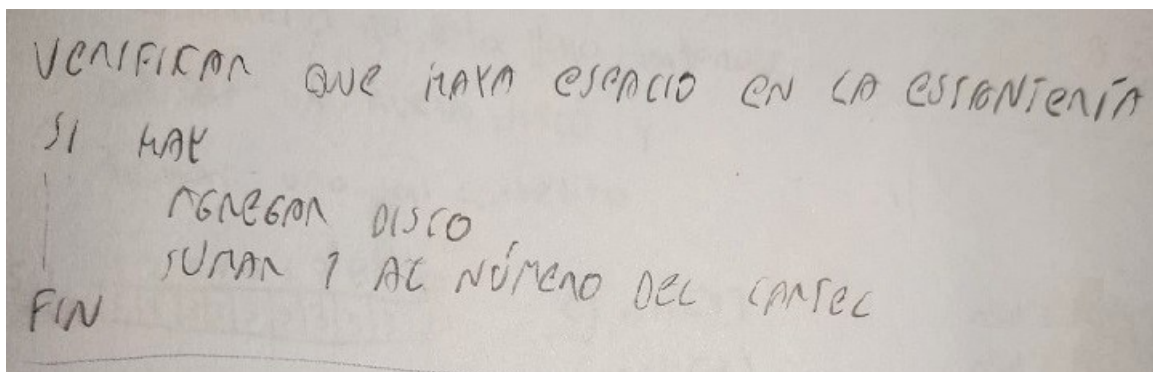 VERIFICAR QUE HAYA ESPACIO EN LA ESTANTERÍA
SI HAY
AGREGAR DISCO
SUMAR 1 AL NÚMERO DEL CARTEL
FIN